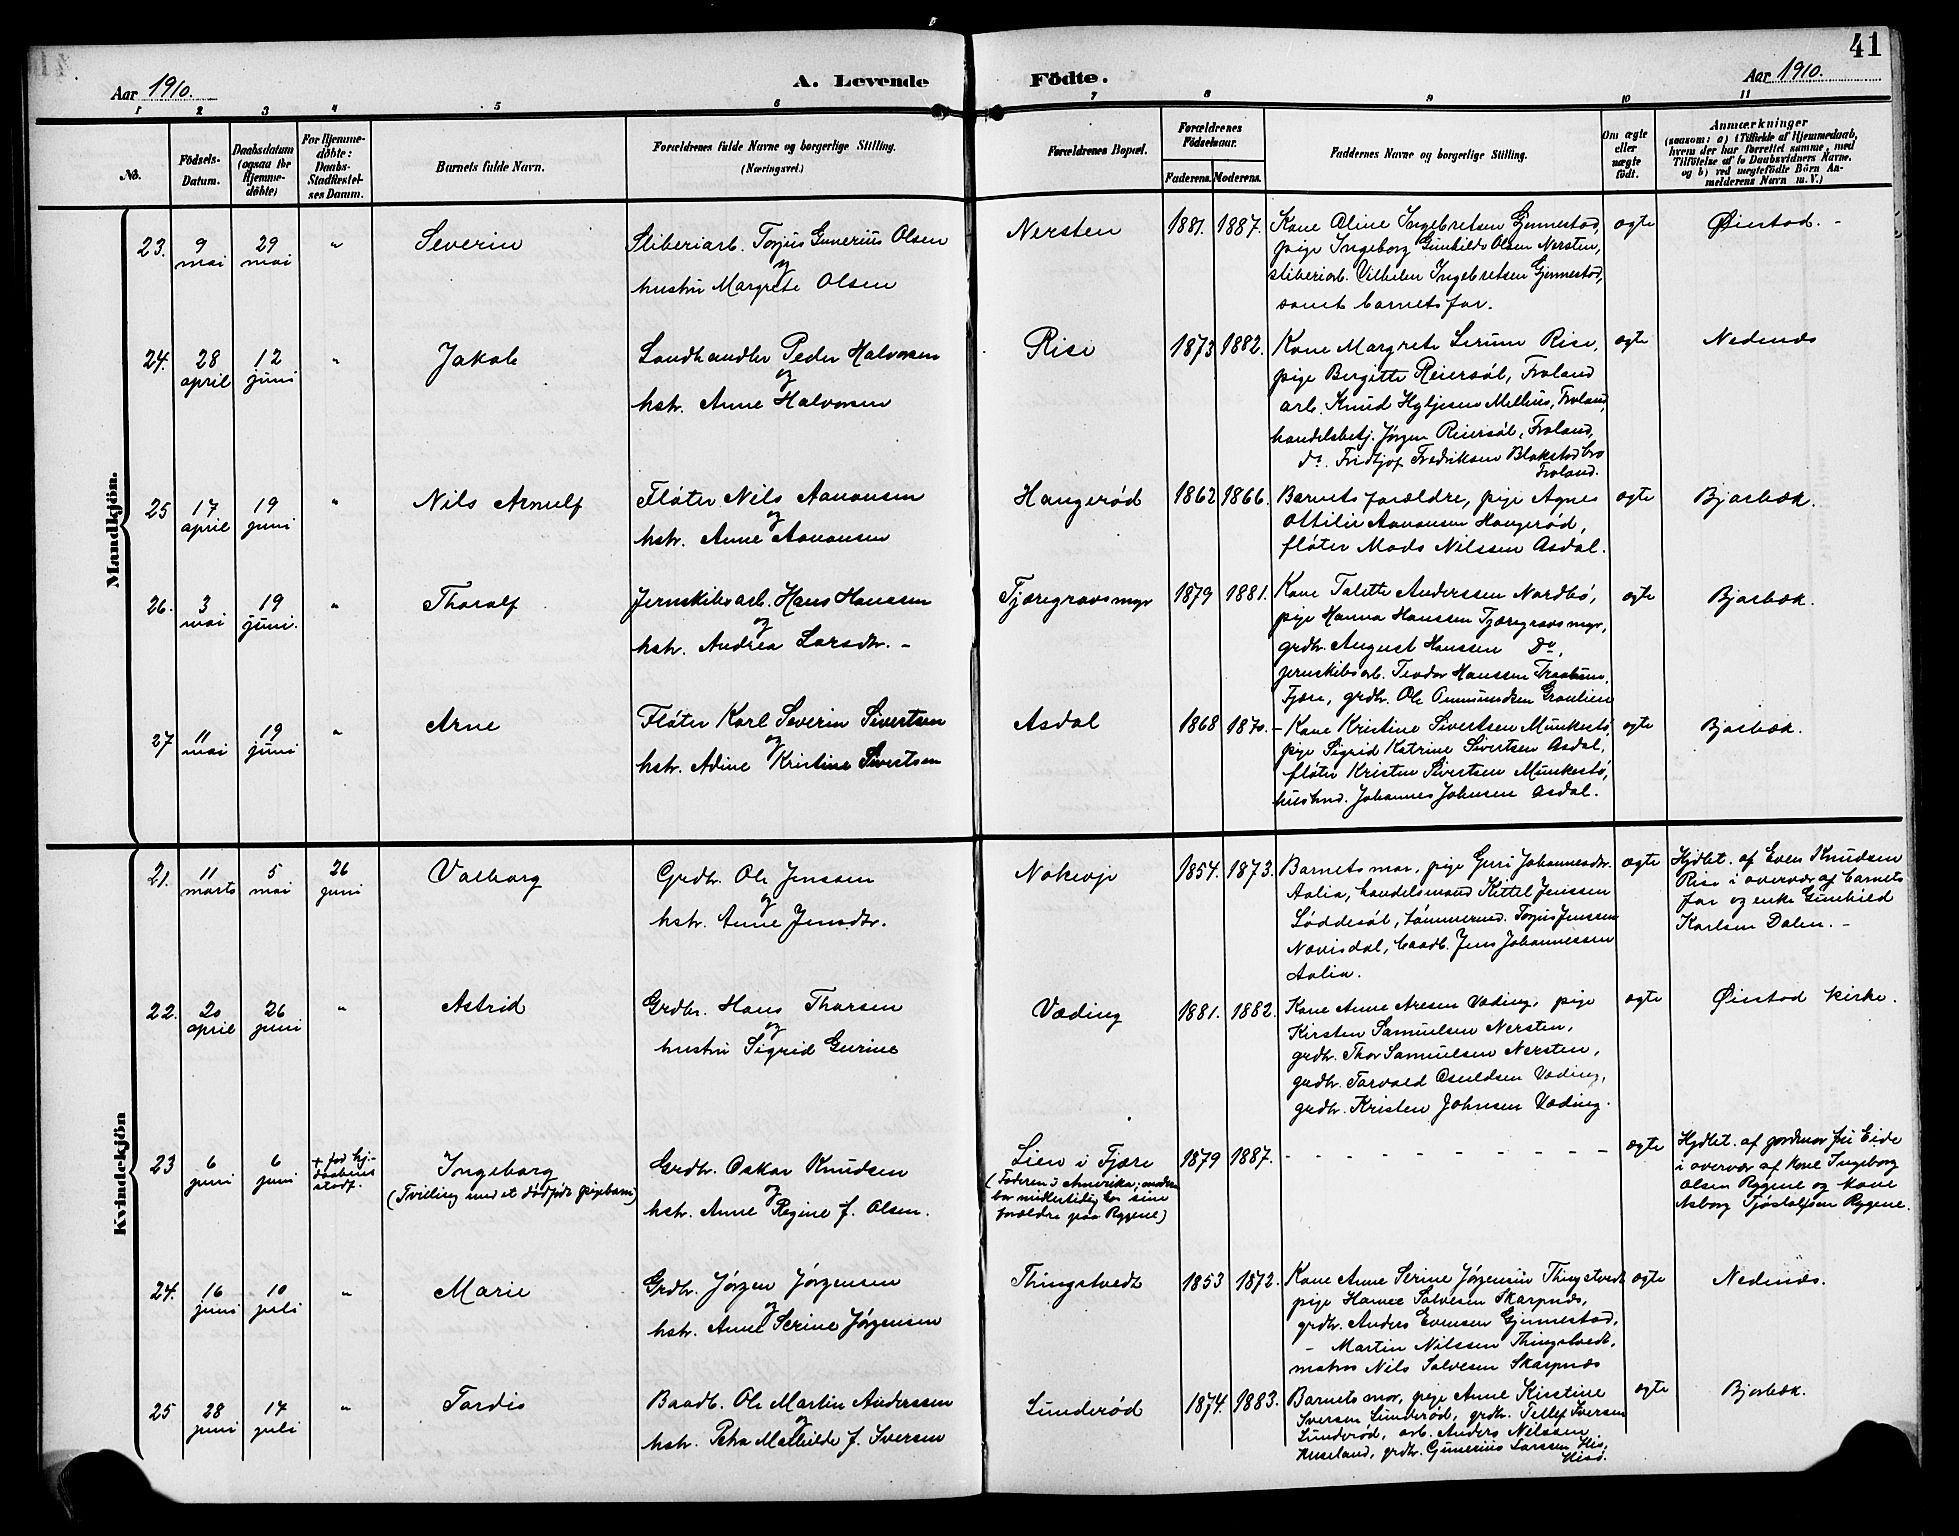 41
Aar 1910.
A. Levende Födte.
Aar 1910.
1 2 3 4 5 6 7 8 9 10 11
No.
Födsels-Datum.
Daabsdatum (ogsaa for Hjemme-döbte)
For Hjemme-döbte: Daabs-Stadfæstel-ses Datum.
Barnets fulde Navn.
Forældrenes fulde Navne og borgerlige Stilling. (Næringsvei.)
Forældrenes Bopæl.
Forældrenes Födselsaar.
Faderens. Moderens.
Faddernes Navne og borgerlige Stilling.
Om ægte eller uægte födt.
Anmærkninger
(saasom: a) i Tilfælde af Hjemmedaab, hvem der har forrettet samme, med Tilföielse af to Daabsvidners Navne, og b) ved uægtefödte Börn An-melderens Navn m. V.)
Mandkjön.
23. 9 mai 29 mai " Severin
Sliberiarb. Torjus Gunerius Olsen
og
hustru Margrete Olsen
Nersten 1881. 1887.
Kone Oline Ingebretsen Gjennestad,
pige Ingeborg Gunhilds Olsen Nersten,
sliberiarb. Vilhelm Ingebretsen Gjennestad,
samt barnets far.
ægte Øiestad. -
24. 28 april 12 juni " Jakob
Landhandler Peder Halvorsen
og
hstr. Anne Halvorsen
Rise 1873 1882.
Kone Margrete Serum Rise,
pige Bergitte Reiersøl, Froland
arb. Knud Hyljesen Mellius, Froland,
handelsbetj. Jørgen Reiersøl, Froland,
do. Fridtjof Fredriksen Blakstad bro
Froland.
ægte Nedenæs
25 17 april 19 juni " Nils Arnulf
Fløter Nils Aanonsen
og
hstr. Anne Aanonsen
Haugerød 1862 1866.
Barnets forældre, pige Agnes
Ottilie Aanonsen Haugerød,
fløter Mads Nilssen Asdal.
ægte Bjorbæk.
26. 3 mai 19 juni. " Thoralf
Jernskibsarb. Hans Hanssen
og
hstr. Andrea Larsdtr. -
Tjæregravsmyr 1879 1881.
Kone Talette Anderssen Nordbø,
pige Hanna Hanssen Tjæregravsmyr,
grdbr. August Hanssen Do,
jernskibsarb. Teodor Hanssen
Fjære, grdbr. Ole Ommundsen Graulien
ægte Bjorbæk.
27 11 mai 19 juni " Arne
Fløter Karl Severin Sivertsen
og
hstr. Adine Kristine Sivertsen
Asdal 1868 1870.
- Kone Kristine Sivertsen Munkestø,
pige Sigrid Katrine Sivertsen Asdal,
fløter Kristen Sivertsen Munkestø,
husmd. Johannes Johnsen Asdal.
ægte Bjorbæk.
Kvindekjön
21. 11 marts 5 mai 26 juni Valborg
Grdbr. Ole Jenssen
og
hstr. Anne Jensdtr.
Nakevje 1854. 1873.
Barnets mor, pige Gerri Johannesdtr.
Aalia, handelsmand Kittel Jenssen
Løddesøl, tømmermd. Torjus Jenssen
Nævisdal, baadb. Jens Johannessen
Aalia.
ægte
Hjdbt. af Even Knudsen
Rise i overvær af barnets
far og enke Gunhild
Karlsen Dalen. -
22. 20 april 26 juni " Astrid
Grdbr. Hans Thorsen
og
hustru Sigrid Gurine
Væding 1881. 1882.
Kone Anne Aresen Væding, pige
Kirsten Samuelsen Nersten,
grdbr. Thor Samuelsen Nersten,
grdbr. Torvald Osuldsen Væding,
grdbr. Kristen Johnsen Væding.
ægte Øiestad kirke.
23 6 juni 6 juni + før hj-daabens stadf.
Ingeborg
(Tvilling med et dødfødt pigebarn)
Grdbr. Oskar Knudsen
og
hstr. Anne Regine f. Olsen.
Lien i Fjære
(Faderen i Amerika; moderen
bor midlertidig hos sine
forældre paa Rygene)
1879 1887.
- - - - - - - - - - -
ægte
Hjdbt. af jordmor fru Eide
i overvær af kone Ingeborg
Olsen Rygene og kone
Asborg Tjøstolfsen Rygene.
24. 16 juni 10 juli " Marie
Grdbr. Jørgen Jørgensen
og
hstr. Anne Serine Jørgensen
Thingstvedt 1853 1872.
Kone Anne Serine Jørgensen Thingstvedt
pige Hanne Salvesen Skarpnæs,
grdbr. Anders Evensen Gjennestad,
- Martin Nilssen Thingstvedt,
matros Nils Salvesen Skarpnæs
ægte Nedenæs.
25 28 juni 17 juli " Tordis
Baadb. Ole Martin Anderssen
og
hstr. Petra Mathilde f. Iversen
Lunderød 1874. 1883.
Barnets mor, pige Anne Kirstine
Iversen Lunderød, grdbr. Tellef Iversen
Lunderød, arb. Anders Nilssen
Huseland, grdbr. Gunerius Larssen His,
Hisø.
ægte Bjorbæk.